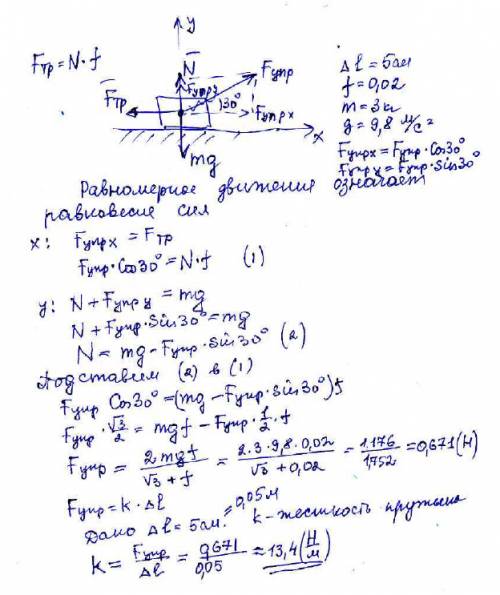 y
Fтр = N·f
N
Fупр
Fупр y
Fтр
30°
Fупр x
x
mg
Δl = 5см
f = 0,02
m = 3кг
g = 9,8 м/с²
Fупрx = Fупр·Cos30°
Fупр y = Fупр·Sin30°
Равномерное движения означает
равновесие сил
x: Fупрx = Fтр
Fупр·Cos30° = N·f (1)
y: N + Fупр y = mg
N + Fупр·Sin30° = mg
N = mg - Fупр·Sin30° (2)
Подставим (2) в (1)
Fупр Cos30° = (mg - Fупр·Sin30°)f
Fупр·√3/2 = mgf - Fупр·1/2·f
Fупр = 2mgf/(√3 + f) = 2·3·9,8·0,02/(√3 + 0,02) = 1.176/1,752 = 0,671(Н)
Fупр = k·Δl
Дано Δl = 5см. = 0,05м k - жесткость пружины
k = Fупр/Δl = 0,671/0,05 ≈ 13,4 (Н/м)